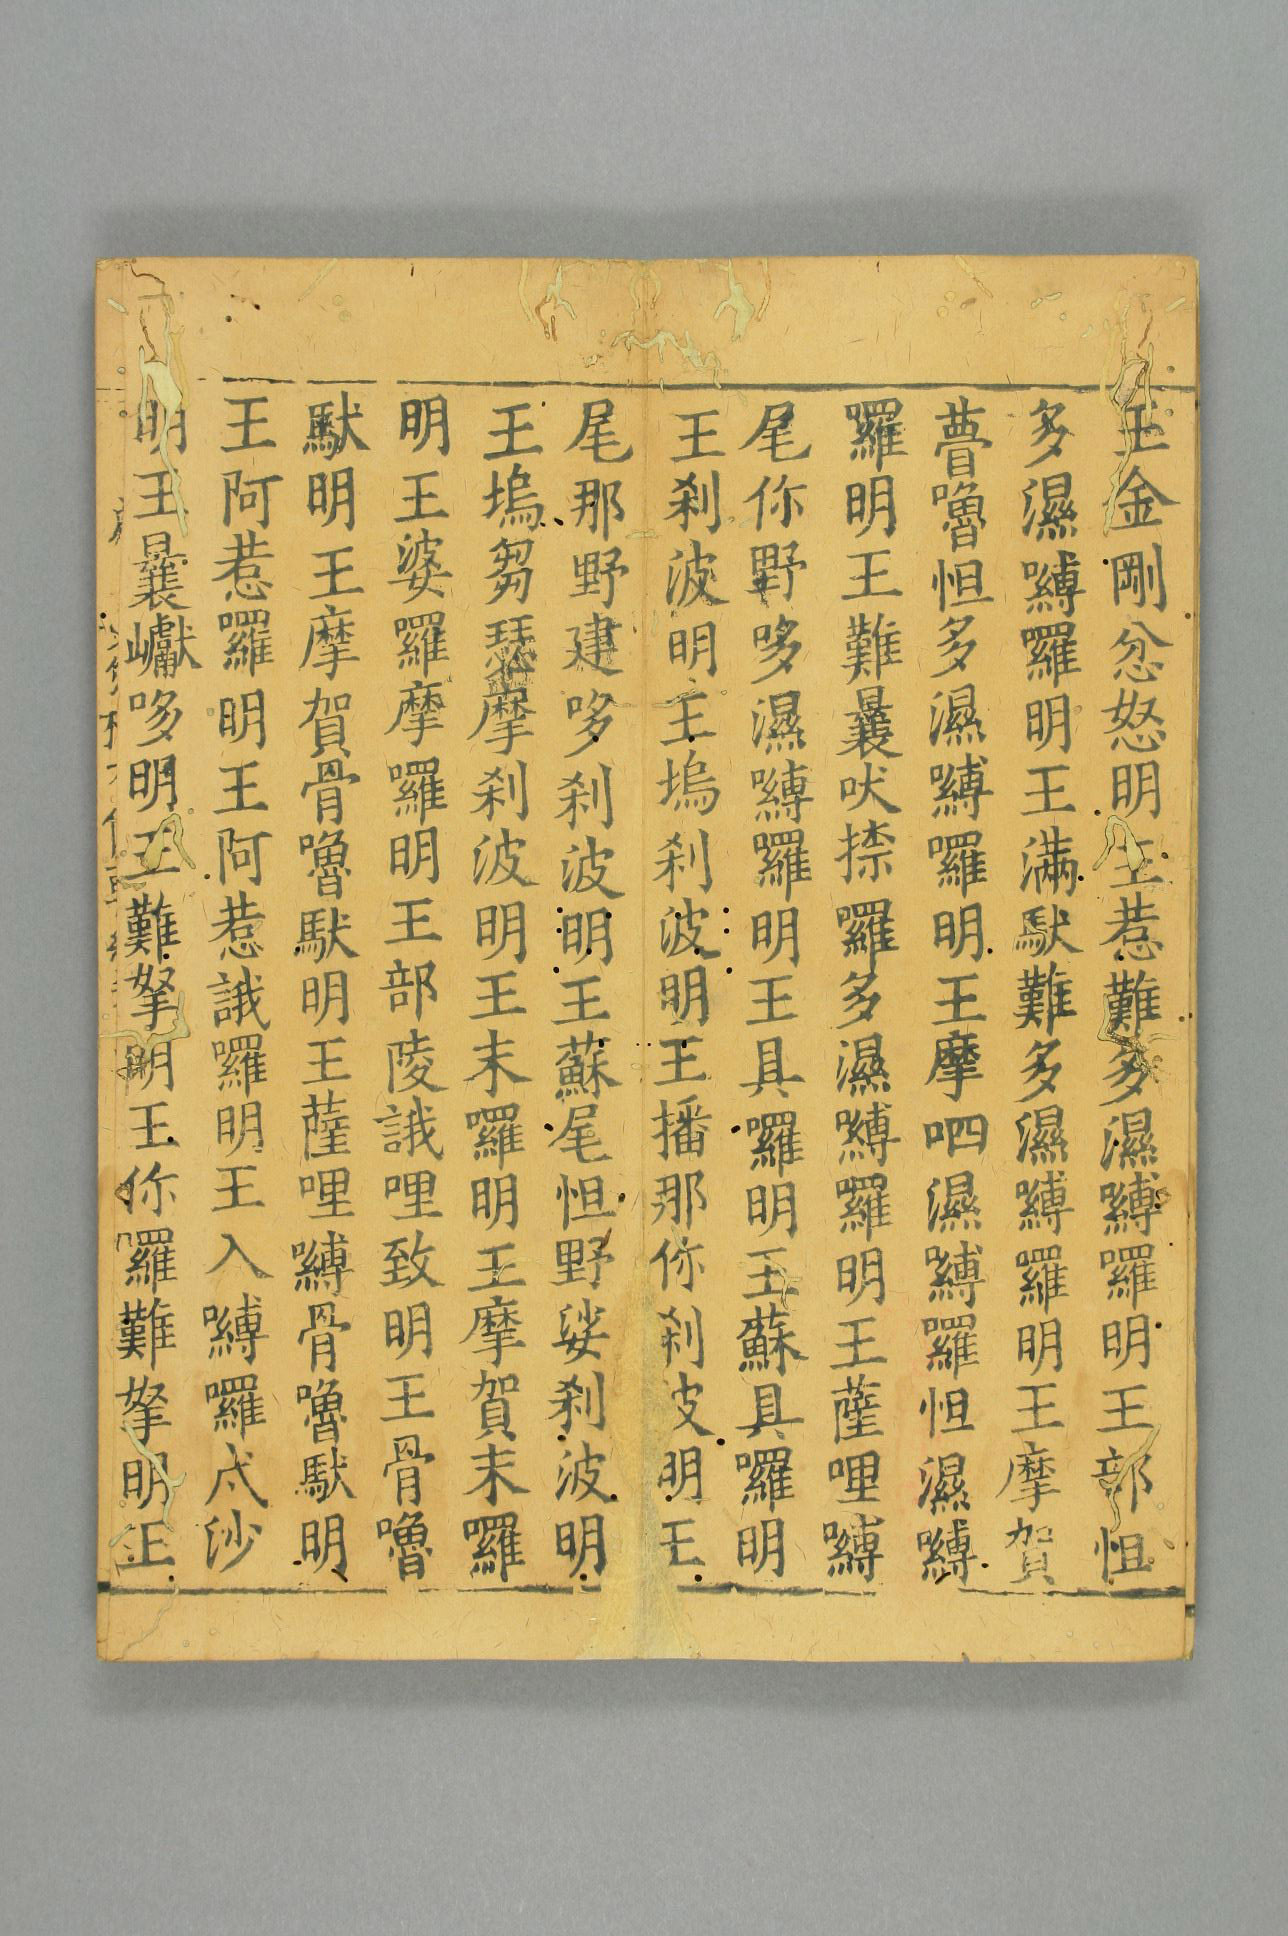 王金剛忿怒明王惹難多濕嚩囉明王部怛
多濕嚩囉明王滿馱難多濕嚩囉明王摩賀
瞢嚕怛多濕嚩囉明王摩呬濕嚩囉怛濕嚩
囉明王難曩吠捺囉多濕嚩囉明王薩哩嚩
尾你野哆濕嚩囉明王具囉明王蘇具囉明
王刹波明王塢刹波明王播那你刹波明王
尾那野建哆刹波明王蘇尾怛野娑刹波明
王塢芻瑟摩刹波明王末囉明王摩賀末囉
明王婆囉摩囉明王部陵誐哩致明王骨嚕
馱明王摩賀骨嚕馱明王薩哩嚩骨嚕馱明
王阿惹囉明王阿惹誐囉明王入嚩囉尐沙
明王曩巘哆明王難拏明王你囉難拏明王